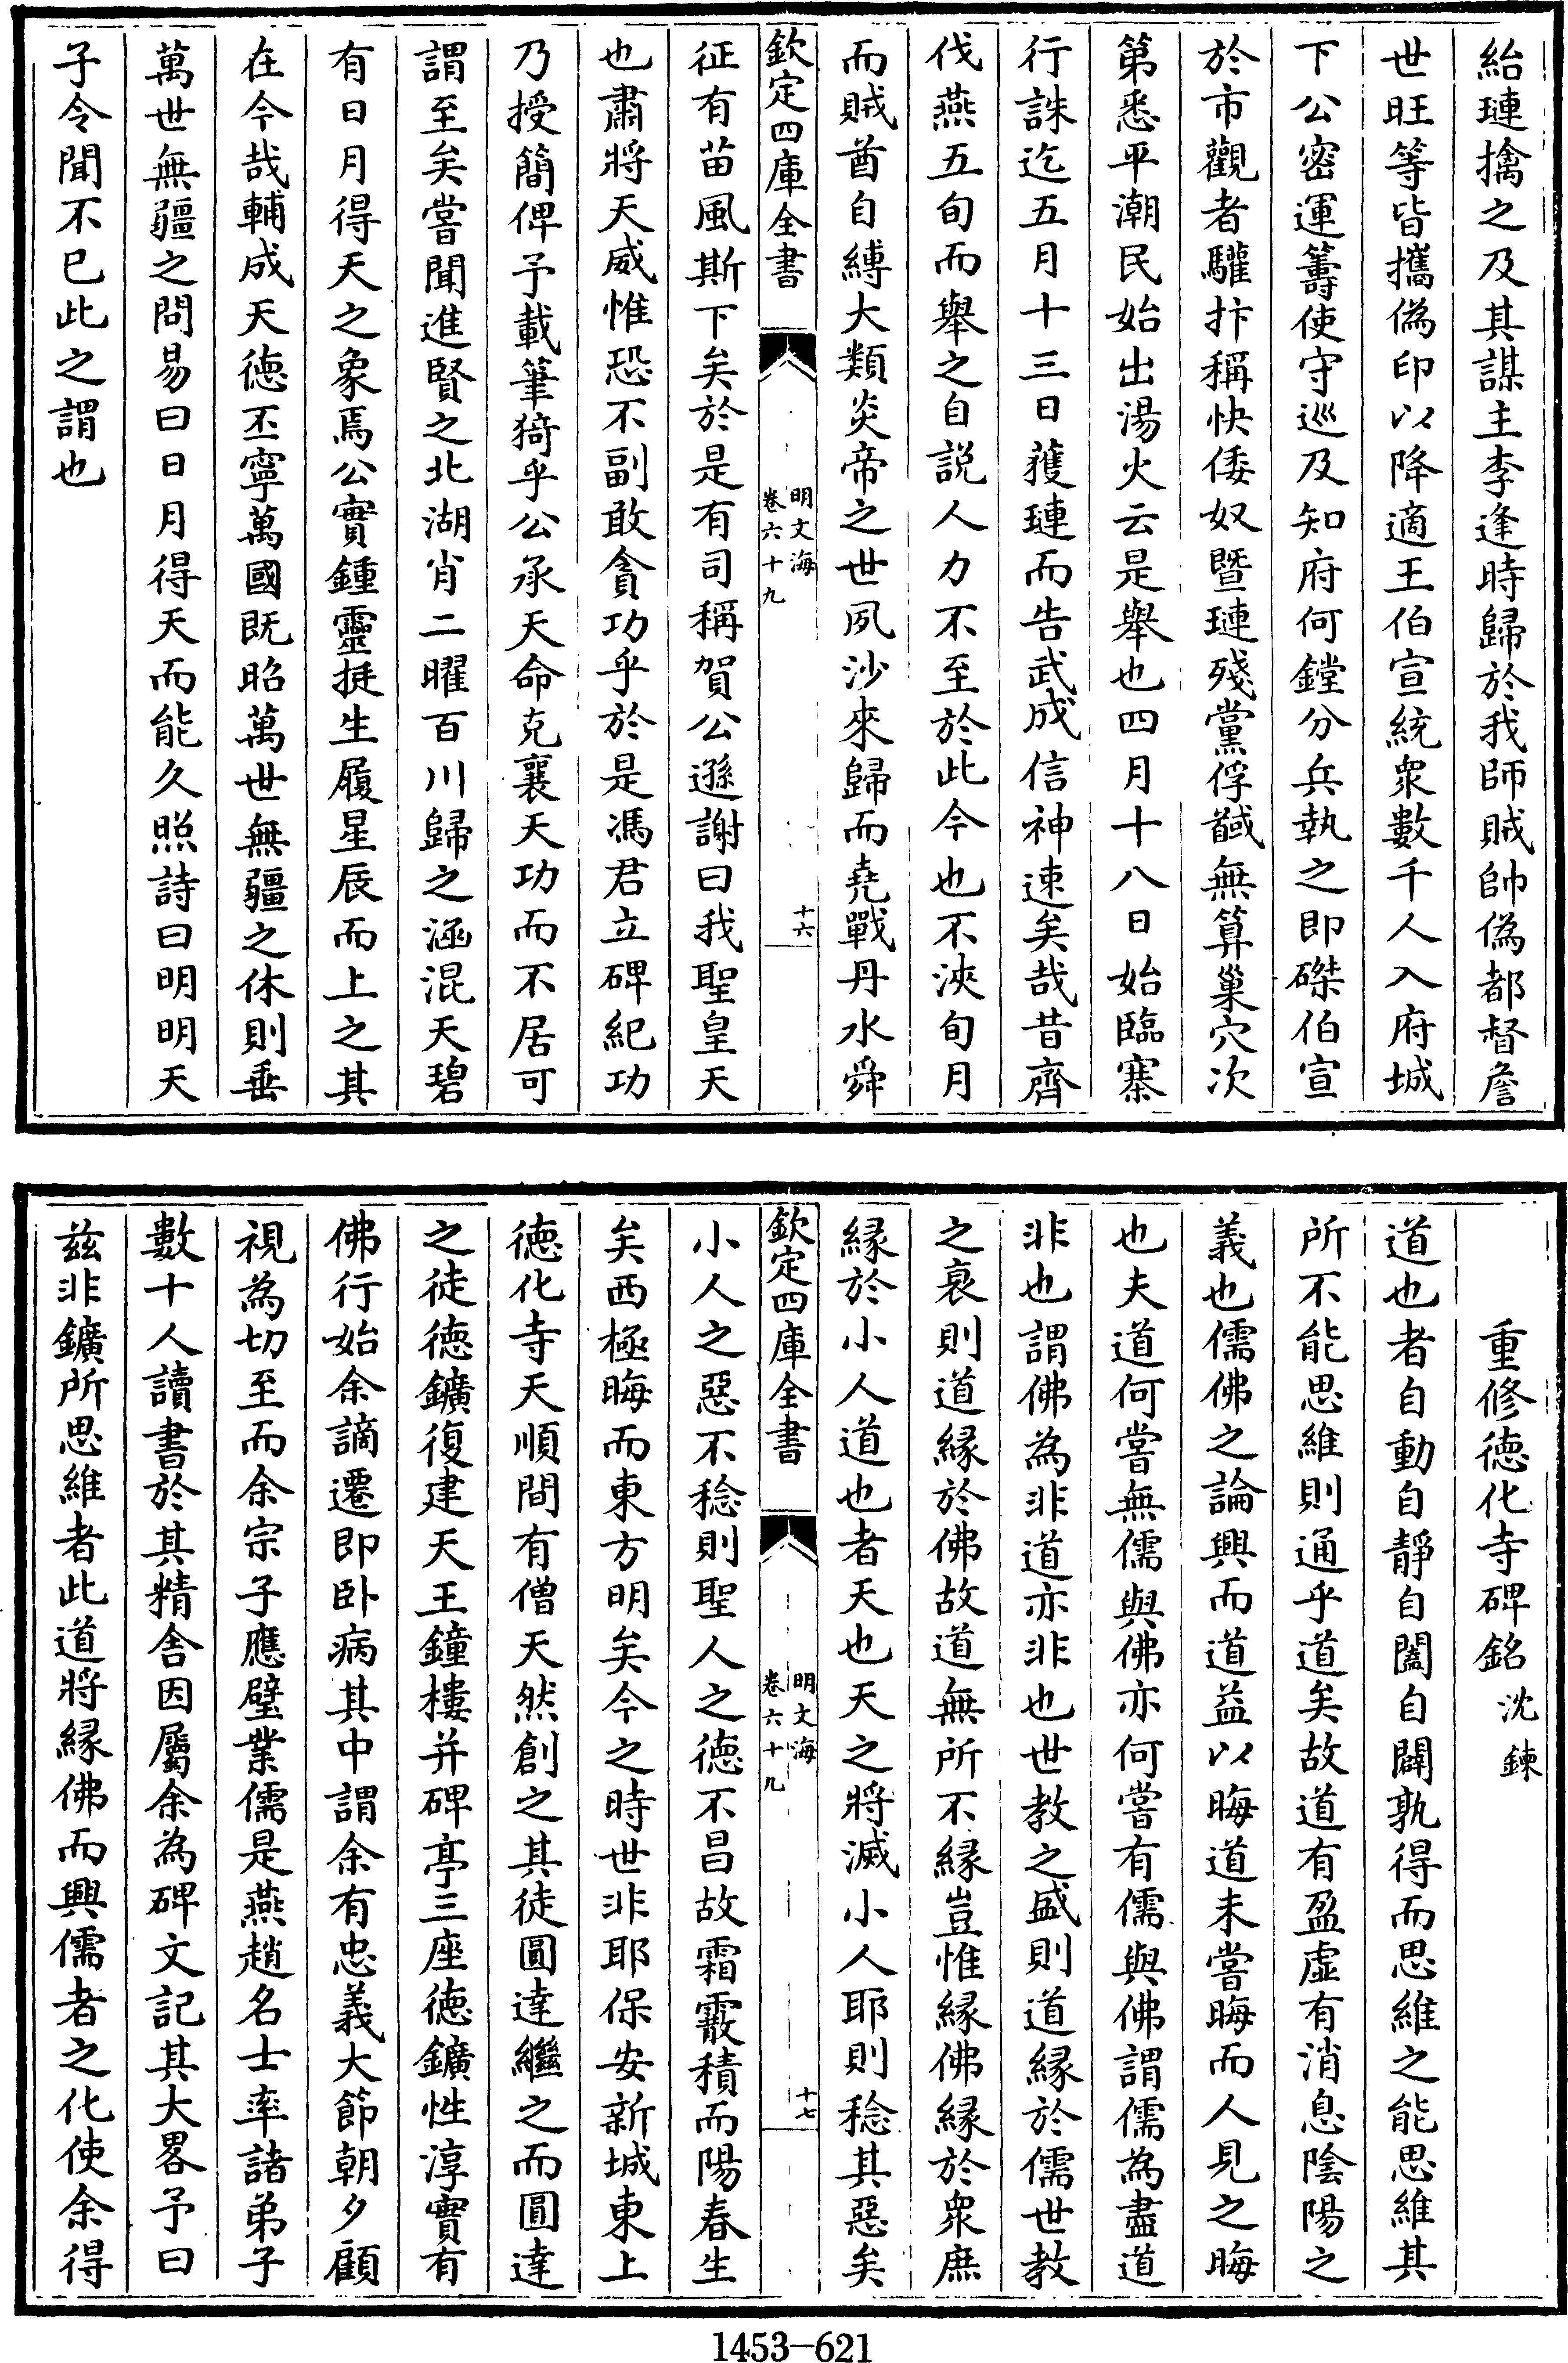 紿璉擒之及其謀主李逢時歸於我師賊帥偽都督詹
世旺等皆攜偽印以降適王伯宣統衆數千人入府城
下公密運籌使守巡及知府何鏜分兵執之即磔伯宣
於市觀者驩抃稱快倭奴暨璉殘黨俘馘無算巢穴次
第悉平潮民始出湯火云是舉也四月十八日始臨寨
行誅迄五月十三日蒦璉而告武成信神速矣哉昔齊
伐燕五旬而舉之自説人力不至於此今也不浹旬月
而賊酋自縛大類炎帝之世夙沙來歸而堯戰丹水舜
欽定四庫全書
明文海
卷六十九
十六
征有苗風斯下矣於是有司稱賀公遜謝曰我聖皇天
也肅將天威惟恐不副敢貪功乎於是馮君立碑紀功
乃授簡俾予載筆猗乎公承天命克襄天功而不居可
謂至矣嘗聞進賢之北湖肖二曜百川歸之涵混天碧
有日月得天之象焉公實鍾靈挺生履星辰而上之其
在今哉輔成天德丕寧萬國既昭萬世無疆之休則垂
萬世無疆之問易曰日月得天而能久照詩曰明明天
子令聞不已此之謂也
重修徳化寺碑銘 沈鍊
道也者自動自靜自闔自闢孰得而思維之能思維其
所不能思維則通乎道矣故道有盈虛有消息陰陽之
義也儒佛之論興而道益以晦道未嘗晦而人見之晦
也夫道何嘗無儒與佛亦何嘗有儒與佛謂儒為盡道
非也謂佛為非道亦非也世教之盛則道緣於儒世教
之衰則道緣於佛故道無所不緣豈惟緣佛緣於衆庶
緣於小人道也者天也天之將滅小人耶則稔其惡矣
欽定四庫全書
明文海
卷六十九
十七
小人之惡不稔則聖人之徳不昌故霜霰積而陽春生
矣西極晦而東方明矣今之時世非耶保安新城東上
徳化寺天順間有僧天然創之其徒圓達繼之而圓達
之徒徳鑛復建天王鐘樓并碑亭三座徳鑛性淳實有
佛行始余謫遷即卧病其中謂余有忠義大節朝夕顧
視為切至而余宗子子應璧業儒是燕趙名士率諸弟子
數十人讀書於其精舍因屬余為碑文記其大畧予曰
兹非鑛所思維者此道將緣佛而興儒者之化使余得
1453-621